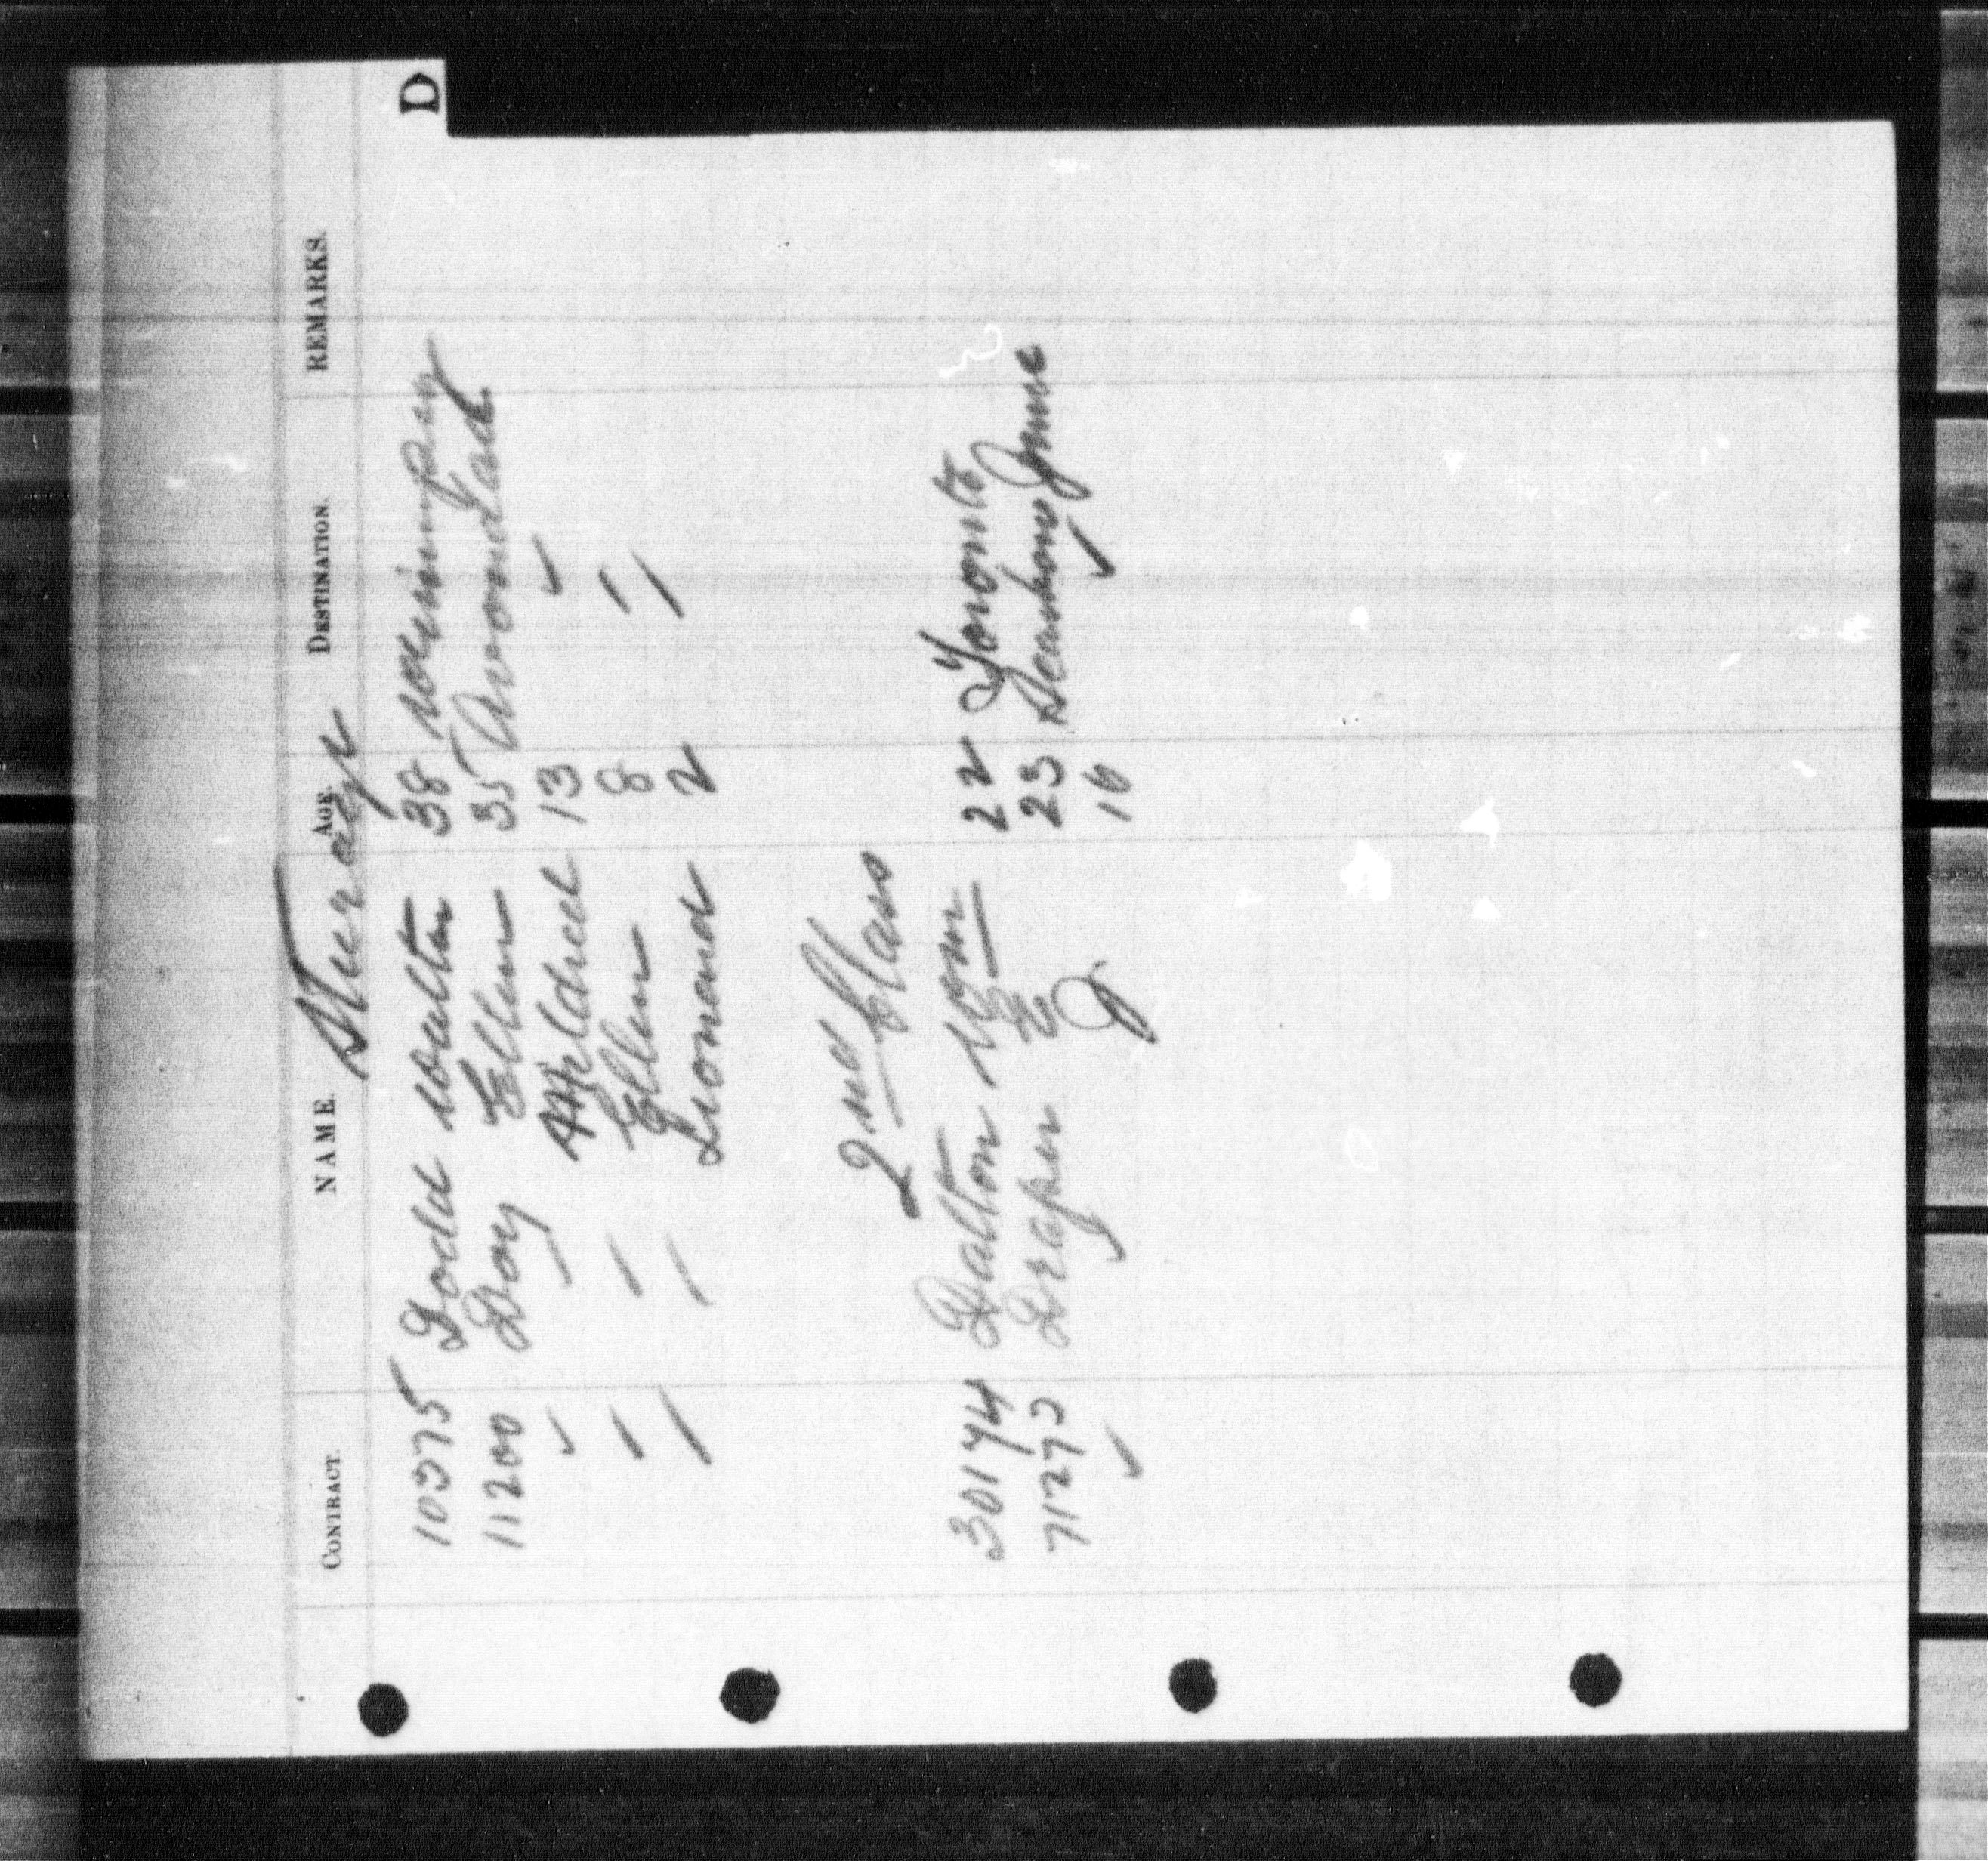 D
CONTRACT. NAME. AGE. DESTINATION. REMARKS.
Steerage
10375 Dodd Walter 38 Winnipeg
11200 Doy Ellen 35 Avondale
✓ " Mildred 13 ✓
" " Ellen 8 "
" " Lionard 2 "
2nd Class
30174 Dalton Wm 22 Toronto
71273 Draper E 23 Dearborn
✓ " J 16 ✓